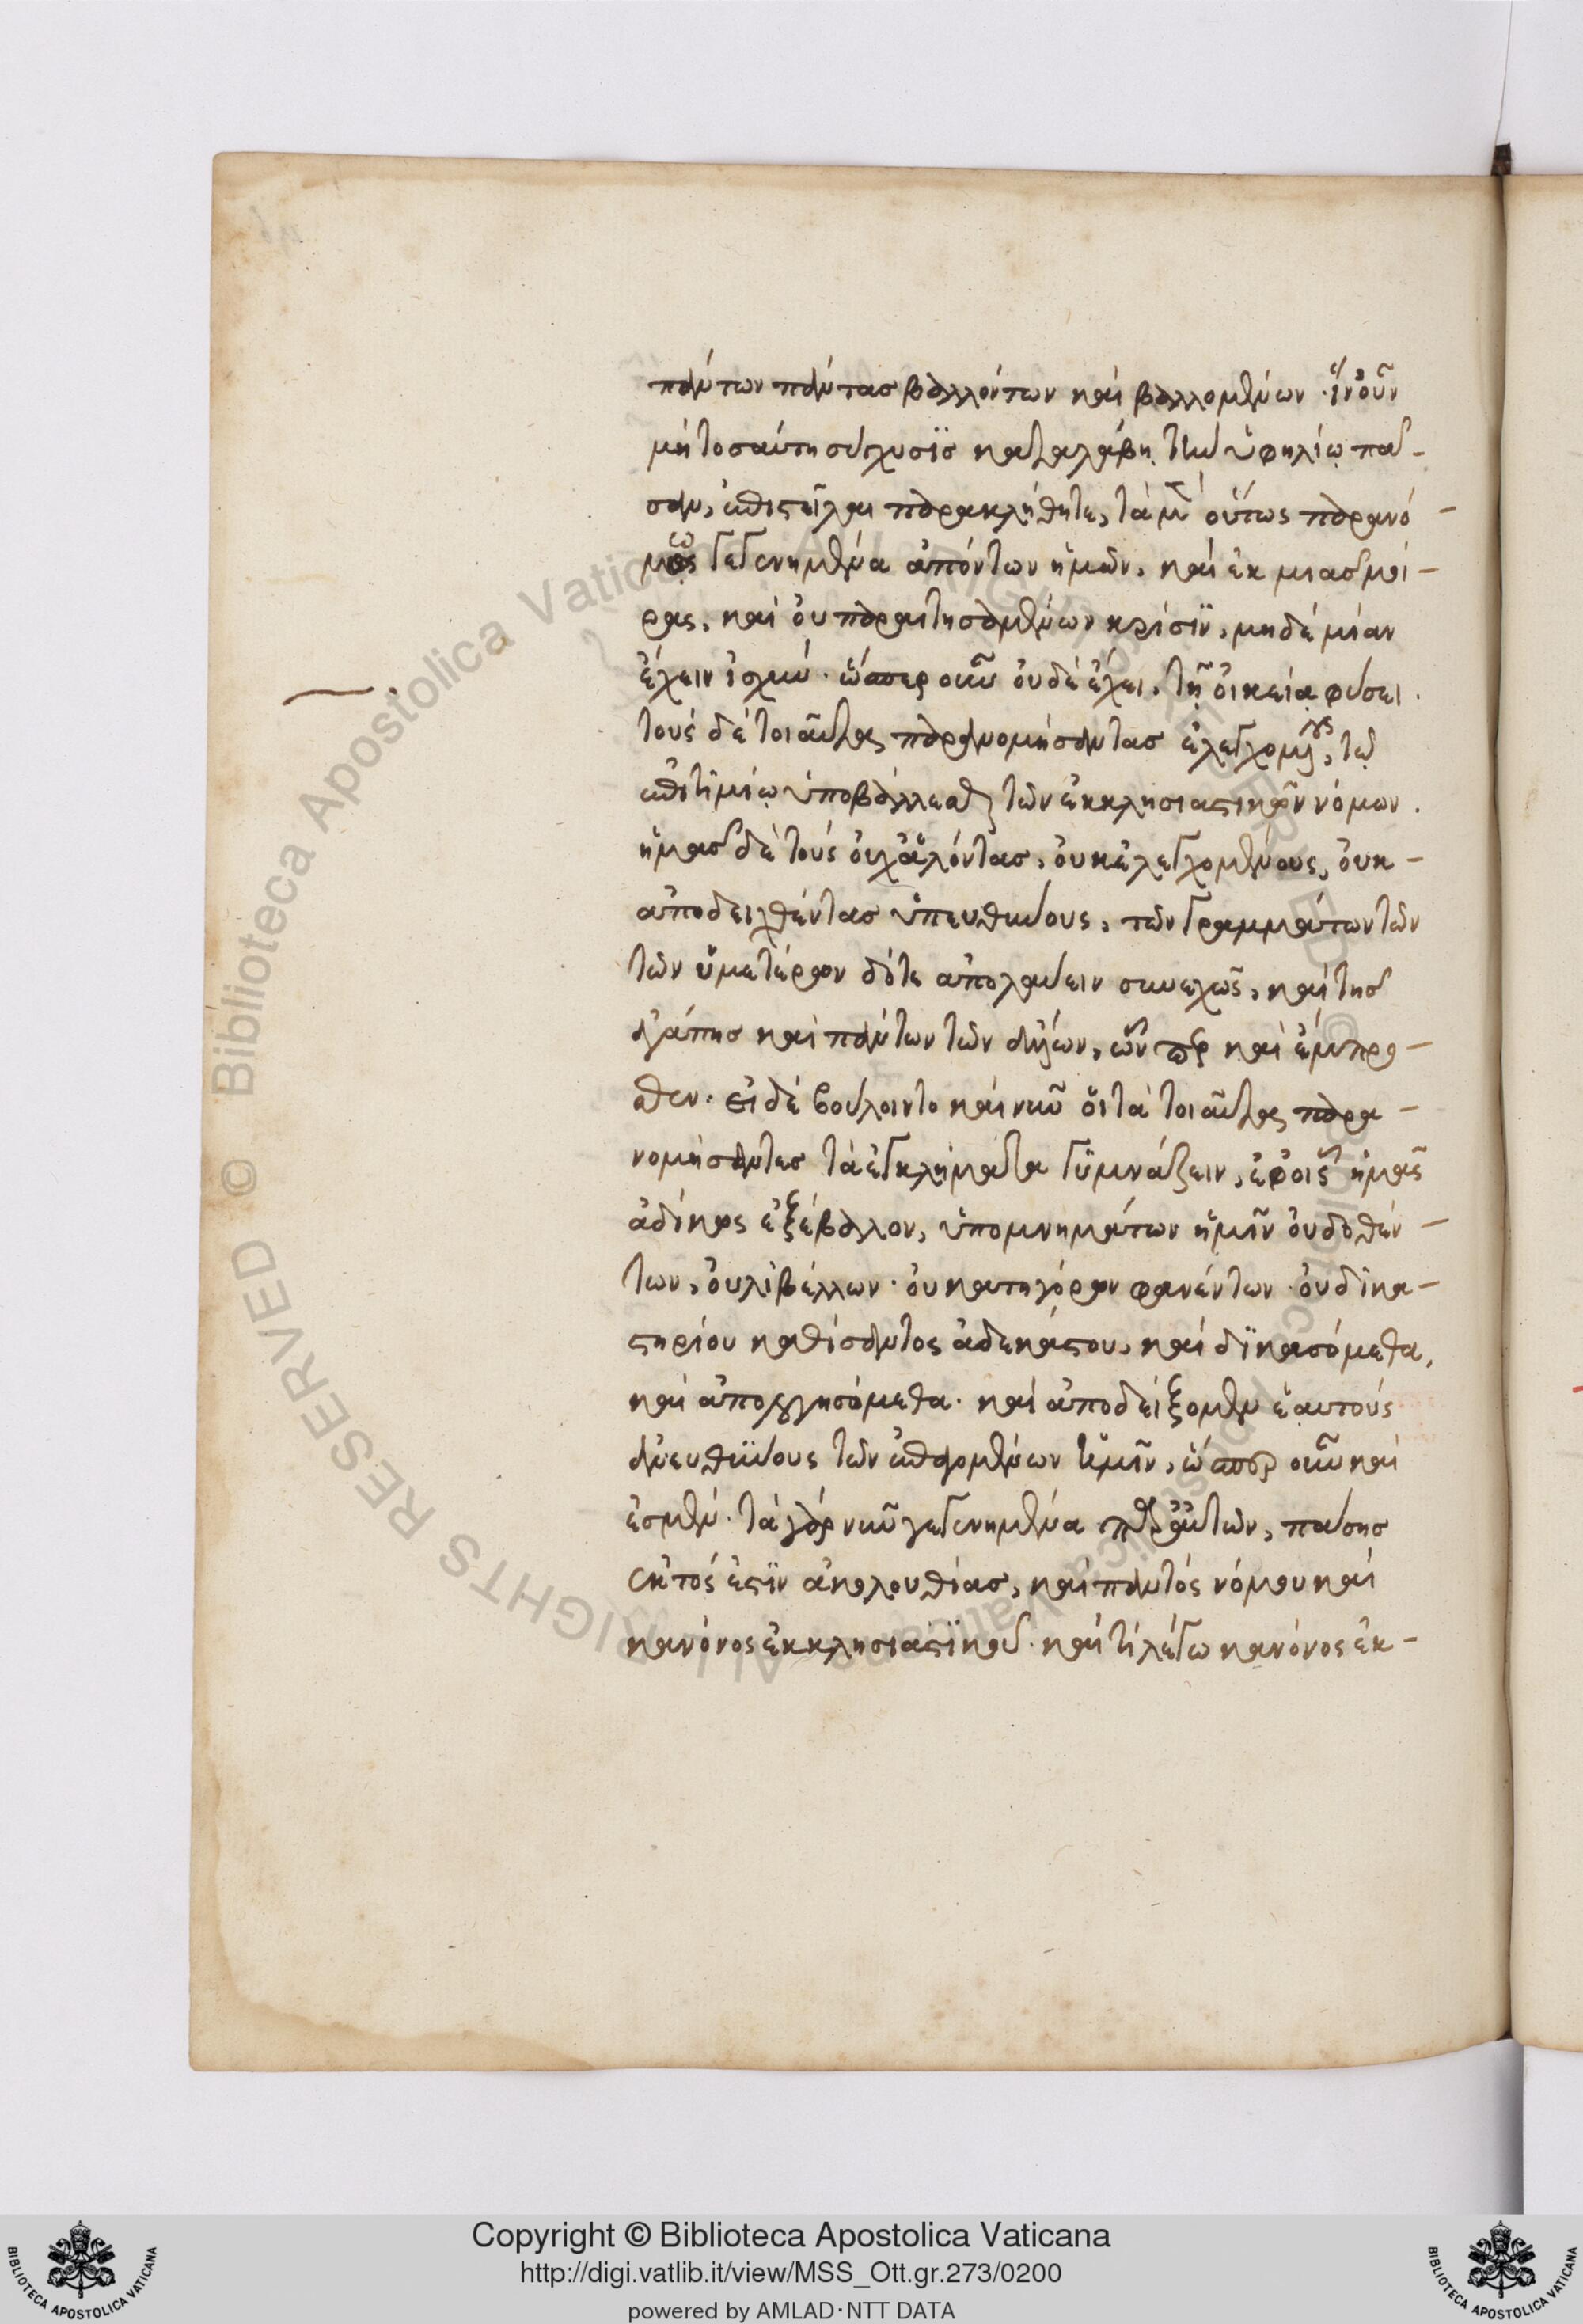 πάντων πάντας βαλλόντων καὶ βαλλομένων. ἵν' οὖν
μὴ τοσαύτη σύγχυσις καταλάβῃ τὴν ὑφηλίῳ πᾶ-
σαν, ἐπιστεῖλαι παρακλήθητε, τὰ μὲν οὕτως παρανό-
μως γεγενημένα ἀπόντων ἡμῶν, καὶ ἐκ μιᾶς μοί-
ρας, καὶ οὐ παραιτησαμένων κρίσιν, μηδεμίαν
ἔχειν ἰσχύν. ὥσπερ οὖν οὐδὲ ἔχει τῇ οἰκείᾳ φύσει.
τοὺς δὲ τοιαῦτα παρανομήσαντας ἐλεγχομένους, τῷ
ἐπιτιμίῳ ὑποβάλλεσθαι τῶν ἐκκλησιαστικῶν νόμων.
ἡμᾶς δὲ τοὺς οὐχ ἁλόντας, οὐκ ἐλεγχομένους, οὐκ
ἀποδειχθέντας ὑπευθύνους, τῶν γραμμάτων τῶν
τῶν ὑμετέρων δότε ἀπολαύειν συνεχῶς, καὶ τῆς
ἀγάπης καὶ πάντων τῶν ἄλλων, ὧνπερ καὶ ἔμπρο-
σθεν. εἰ δὲ βούλοιντο καὶ νῦν οἱ τὰ τοιαῦτα παρα-
νομήσαντες τὰ ἐγκλήματα γυμνάζειν, ἐφ' οἷς ἡμᾶς
ἀδίκως ἐξέβαλλον, ὑπομνημάτων ἡμῖν οὐ δοθέν-
των, οὐ λιβέλλων. οὐ κατηγόρων φανέντων. οὐ δικα-
στηρίου καθίσαντος ἀδεκάστου, καὶ δικασόμεθα,
καὶ ἀπολογησόμεθα. καὶ ἀποδείξομεν ἑαυτοὺς
ἀνευθύνους τῶν ἐπαγομένων ἡμῖν, ὥσπερ οὖν καὶ
ἐσμέν. τὰ γὰρ νῦν γεγενημένα παρ' αὐτῶν, πάσης
ἐκτός ἐστιν ἀκολουθίας, καὶ παντὸς νόμου καὶ
κανόνος ἐκκλησιαστικοῦ. καὶ τί λέγω κανόνος ἐκ-
Copyright © Biblioteca Apostolica Vaticana
http://digi.vatlib.it/view/MSS_Ott.gr.273/0200
powered by AMLAD·NTT DATA
BIBLIOTECA APOSTOLICA VATICANA
BIBLIOTECA APOSTOLICA VATICANA